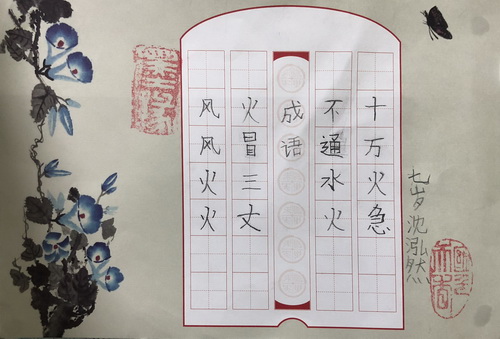 十万火急
不通水火
成语
火冒三丈
风风火火
七岁沈泓然